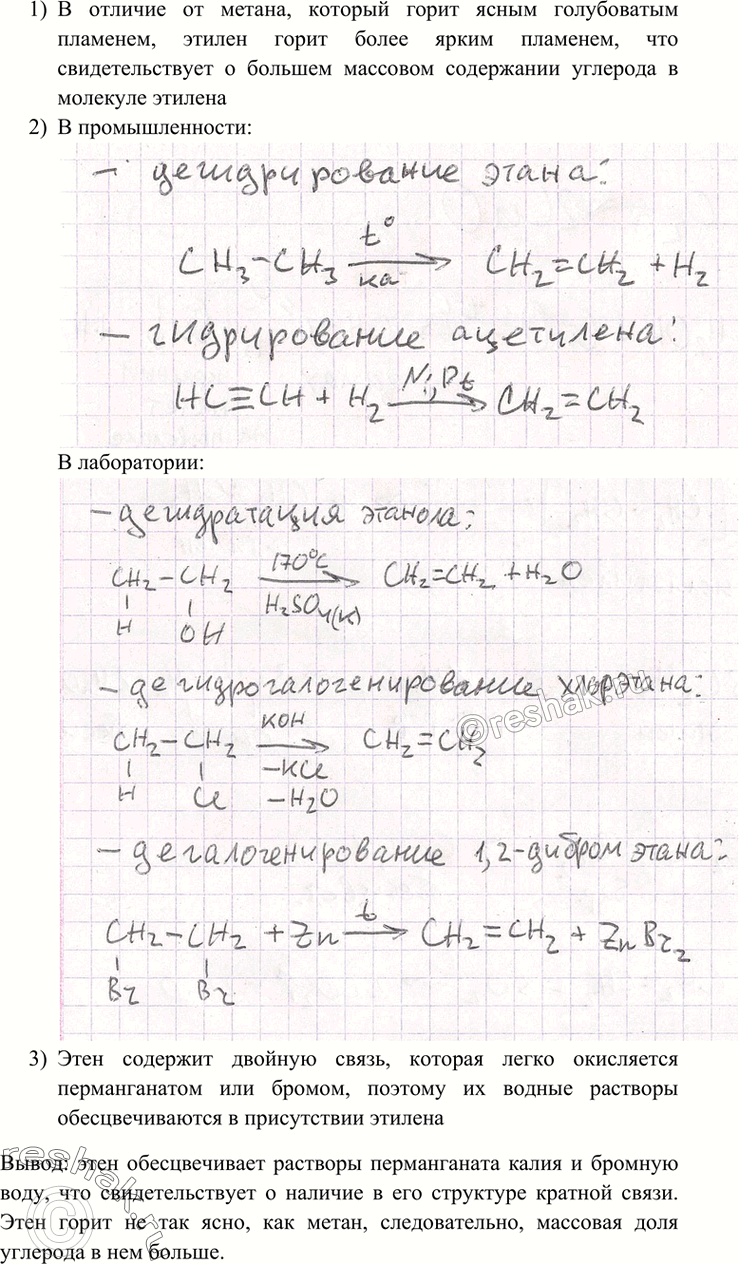 1) В отличие от метана, который горит ясным голубоватым
пламенем, этилен горит более ярким пламенем, что
свидетельствует о большем массовом содержании углерода в
молекуле этилена
2) В промышленности:
- дегидрирование этана:
t°
CH₃-CH₃ → CH₂=CH₂ + H₂
ка
- гидрирование ацетилена:
Ni, Pt
HC≡CH + H₂ → CH₂=CH₂
В лаборатории:
- дегидратация этанола:
170°C
CH₂-CH₂ → CH₂=CH₂ + H₂O
H₂SO₄(к)
H OH
- дегидрогалогенирование хлорэтана:
KOH
CH₂-CH₂ → CH₂=CH₂
-KCl
H Cl -H₂O
- дегалогенирование 1,2-дибромэтана:
t
CH₂-CH₂ + Zn → CH₂=CH₂ + ZnBr₂
Br Br
©reshak.ru
3) Этен содержит двойную связь, которая легко окисляется
перманганатом или бромом, поэтому их водные растворы
обесцвечиваются в присутствии этилена
Вывод: этен обесцвечивает растворы перманганата калия и бромную
воду, что свидетельствует о наличие в его структуре кратной связи.
Этен горит не так ясно, как метан, следовательно, массовая доля
углерода в нем больше.
©reshak.ru